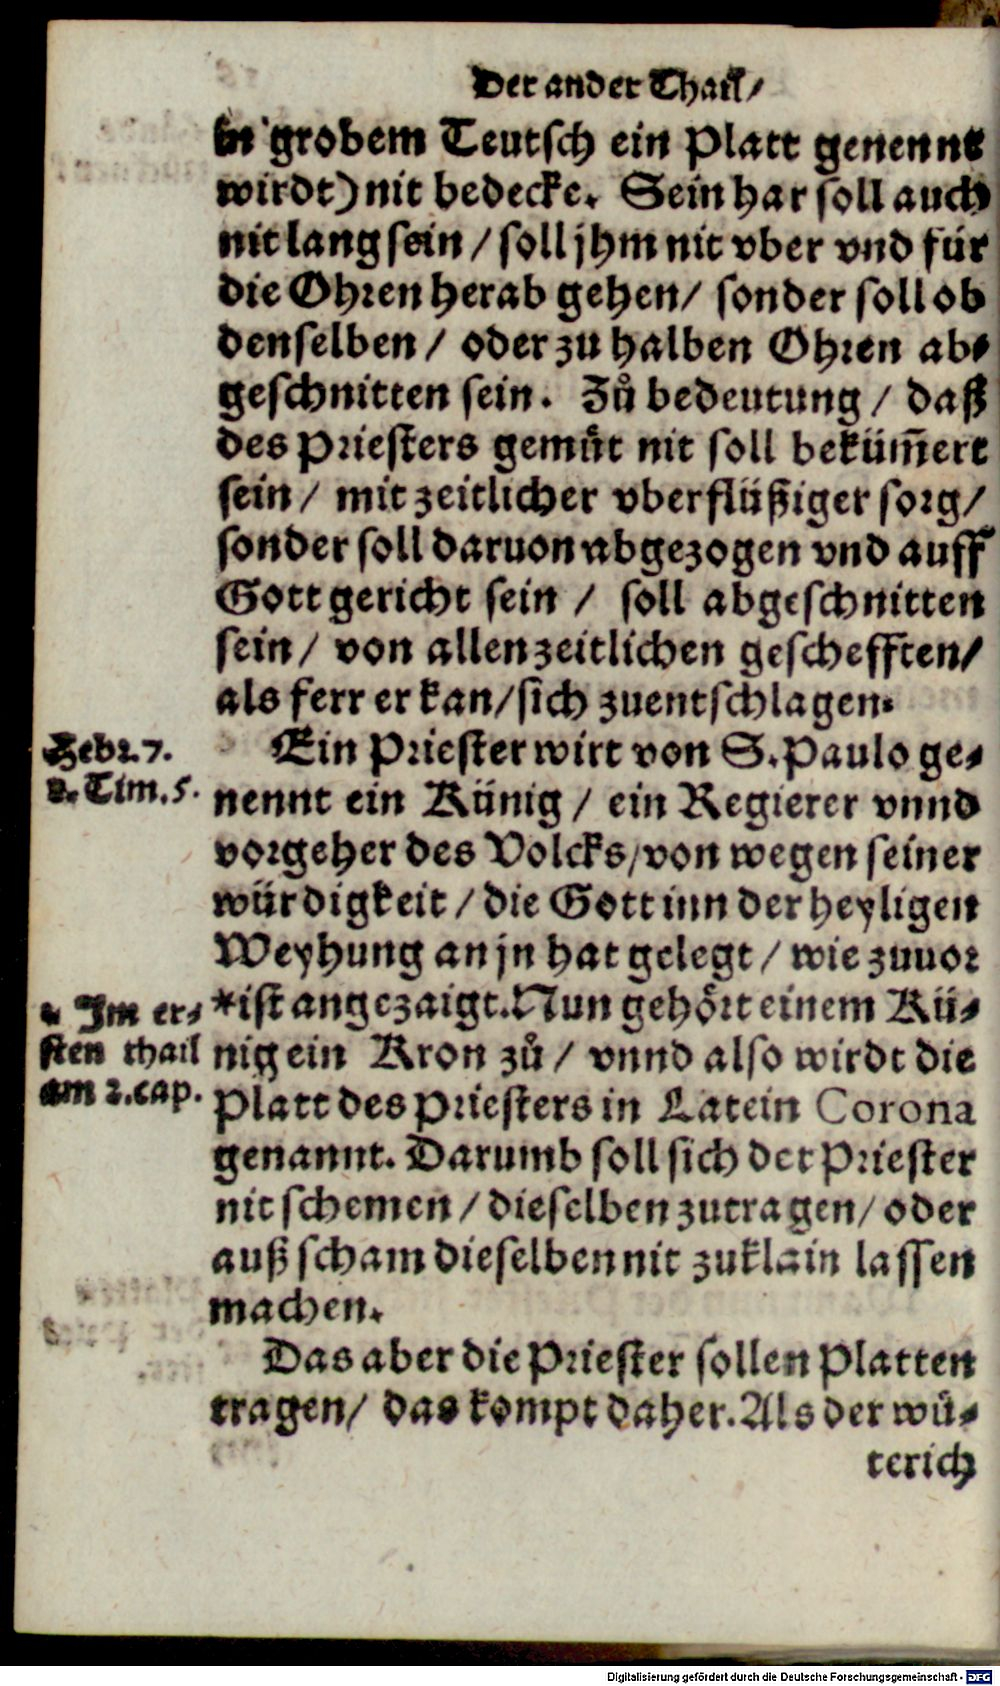 Der ander Thail/
in grobem Teutsch ein Platt genennt
wirdt) nit bedecke. Sein har soll auch
nit lang sein / soll jhm nit vber vnd für
die Ohren herab gehen/ sonder soll ob
denselben / oder zu halben Ohren ab-
geschnitten sein. Zů bedeutung / daß
des Priesters gemüt nit soll beküm̄ert
sein / mit zeitlicher vberflüßiger sorg/
sonder soll daruon abgezogen vnd auff
Gott gericht sein / soll abgeschnitten
sein / von allen zeitlichen geschefften/
als ferr er kan/ sich zuentschlagen.
Hebr. 7.
Ein Priester wirt von S. Paulo ge-
Tim. 5.
nennt ein Künig / ein Regierer vnnd
vorgeher des Volcks/ von wegen seiner
würdigkeit / die Gott inn der heyligen
Weyhung an jn hat gelegt / wie zuuor
* Im er-
*ist angezaigt. Nun gehört einem Kü-
sten thail
nig ein Kron zů / vnnd also wirdt die
am 2. cap.
Platt des Priesters in Latein Corona
genannt. Darumb soll sich der Priester
nit schemen / dieselben zutragen/ oder
auß scham dieselben nit zuklain lassen
machen.
Das aber die Priester sollen Platten
tragen/ das kompt daher. Als der wü-
terich
Digitalisierung gefördert durch die Deutsche Forschungsgemeinschaft - DFG